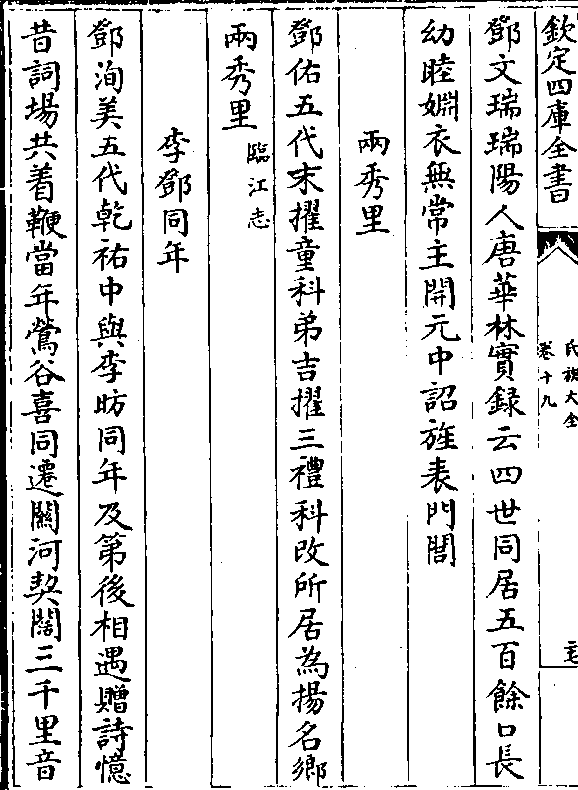 欽定四庫全書
氏族大全
卷十九
鄧文瑞瑞陽人唐華林實録云四世同居五百餘口長
幼睦婣衣無常主開元中詔旌表門閭
兩秀里
鄧佑五代末擢童科弟吉擢三禮科改所居為揚名鄉
兩秀里臨江志
李鄧同年
鄧洵美五代乾祐中與李昉同年及第後相遇贈詩憶
昔詞場共着鞭當年鶯谷喜同遷關河契闊三千里音